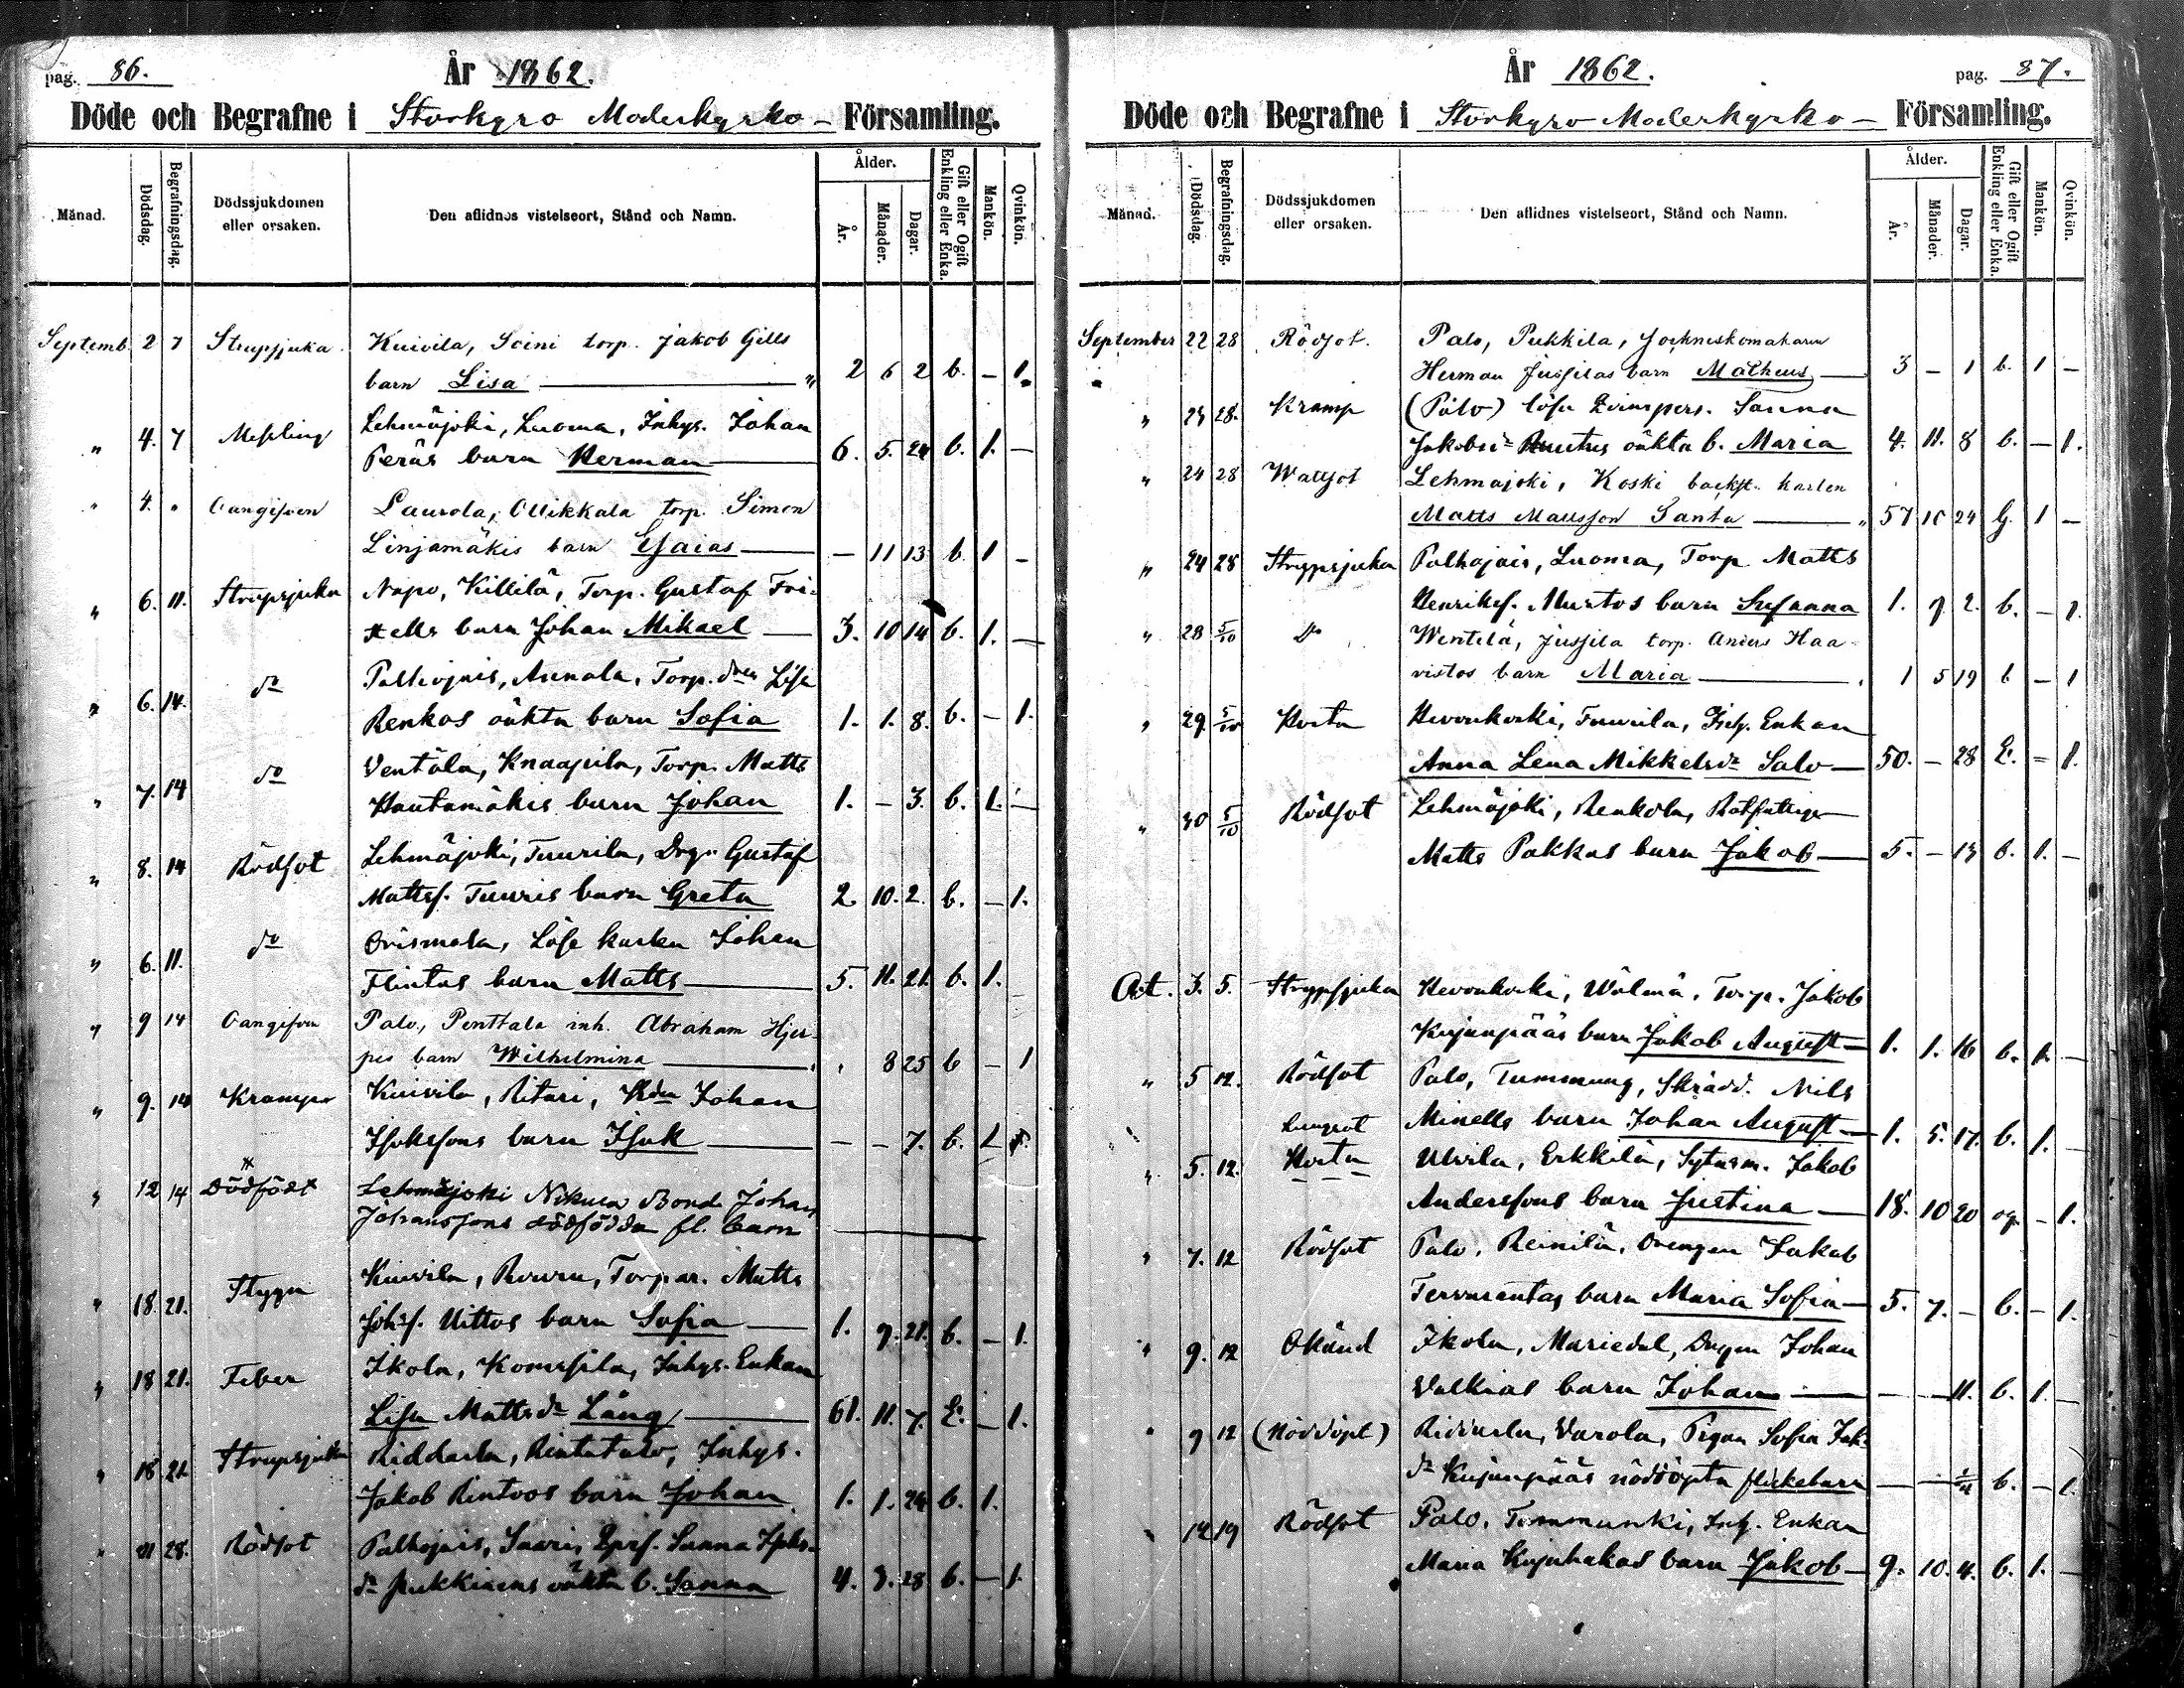 pag. 86.
År 1862.
Döde och Begrafne i Storkyro Moderkyrko- Församling.
Månad. Dödsdag. Begrafningsdag. Dödssjukdomen eller orsaken. Den aflidnes vistelseort, Stånd och Namn. Ålder. År. Månader. Dagar. Gift eller Ogift Enkling eller Enka. Mankön. Qvinkön.
Septemb. 2 7 Strupsjuka Kuivila, torp. Jakob Gills
barn Lisa — " 2 6 2 b. — 1.
" 4. 7 Messling Lehmäjoki, Luoma, Inhys. Johan
Peräs barn Herman — 6. 5. 24 b. 1. —
" 4. " Oangifven Laurola, Ollikkala torp. Simon
Linjamäkis barn Esaias — — 11 13 b 1 —
" 6. 11. Strupsjuka Napo, Killilä, Torp. Gustaf Fri-
ells barn Johan Mikael — 3. 10 14 b. 1. —
" 6. 14. do Palhojais, Annala, Torp. Lisa
Renkos oäkta barn Sofia 1. 1. 8. b. — 1.
" 7. 14 do Ventälä, Knaapila, Torp. Matts
Hautamäkis barn Johan 1. — 3. b. 1. —
" 8. 14 Rödsot Lehmäjoki, Tuurila, Drg. Gustaf
Mattss. Tuuris barn Greta 2. 10. 2. b. — 1.
" 6. 11. do Orismala, Löse karlen Johan
Flintas barn Matts — 5. 11. 21. b. 1. —
" 9 14 Oangifven Palo, Penttala inh. Abraham Hjer-
pes barn Wilhelmina — " 8 25 b — 1
" 9. 14 Kramper Kuivila, Ritari, Johan
Isakssons barn Isak — — — 7. b. 1.
" 12 14 Dödfödt Lehmäjoki Nikula Bond. Johan
Johanssons dödfödda fl. barn —
" 18. 21. Stygn Kuivila, Torpar. Matts
Johss. Uittos barn Sofia — 1. 9. 21. b. — 1.
" 18 21. Feber Ikola, Komsila, Inhys. Enkan
Lisa Mattsdr Lång — 61. 11. 7. E. — 1.
" 18 21. Strupsjuka Riddarla, Rintatalo, Inhys.
Jakob Rintoos barn Johan 1. 1. 24 b. 1.
" 21 28. Rödsot Palhojais, Saari, Sanna
dr oäkta b. Sanna 4. 3. 28 b. — 1.
År 1862.
pag. 87.
Döde och Begrafne i Storkyro Moderkyrko- Församling.
Månad. Dödsdag. Begrafningsdag. Dödssjukdomen eller orsaken. Den aflidnes vistelseort, Stånd och Namn. Ålder. År. Månader. Dagar. Gift eller Ogift Enkling eller Enka. Mankön. Qvinkön.
September 22 28 Rödsot. Palo, Pukkila, Sockneskomakaren
Herman Jussilas barn Matheus — 3 — 1 b. 1 —
" 28. Kramp (Palo) lösa Sanna
Jakobsdr oäkta b. Maria 4. 11. 8 b. — 1.
" 24 28 Wattsot Lehmäjoki, Koski backst. karlen
Matts Mattsson Santa — " 57 10 24 G. 1 —
" 24 28 Strypsjuka Palhojais, Luoma, Torp. Matts
Henrikss. Murtos barn Susanna 1. 7. 2. b. — 1.
" 28 5/10 do Wentelä, Jussila torp. Anders Haa-
vistos barn Maria — " 1 5 19 b — 1
" 29. 5/10 Hosta Hevonkoski, Tuurila, Inh. Enkan
Anna Lena Mikkelsdr Salo — 50. — 28 E. — 1.
" 30 5/10 Rödsot Lehmäjoki, Renkola,
Matts Pakkas barn Jakob — 5. — 13 b. 1. —
Oct. 3. 5. Strypsjuka Hevonkoski, Wälmä, Torp. Jakob
Kujanpääs barn Jakob August — 1. 1. 16 b. 1. —
" 5 12. Rödsot Palo, Skrädd. Nils
Minells barn Johan August — 1. 5. 17. b. 1. —
" 5. 12. Lungsot Hosta Ulvila, Erkkilä, Sytnsm. Jakob
Anderssons barn Justina — 18. 10 20 og. — 1.
" 7. 12 Rödsot Palo, Reinilä, Drengen Jakob
barn Maria Sofia — 5. 7. — b. — 1.
" 9. 12 Okänd Ikola, Mariedal, Drgen Johan
Valkias barn Johan — — — 11. b. 1. —
" 9 12 (Nöddöpt) Riddarla, Varola, Pigan Sofia Jak.
dr Kujanpääs nöddöpta flickebarn — — b. — 1.
" 12 19 Rödsot Palo, Inh. Enkan
Maria Kujahakas barn Jakob — 9. 10. 4. b. 1. —